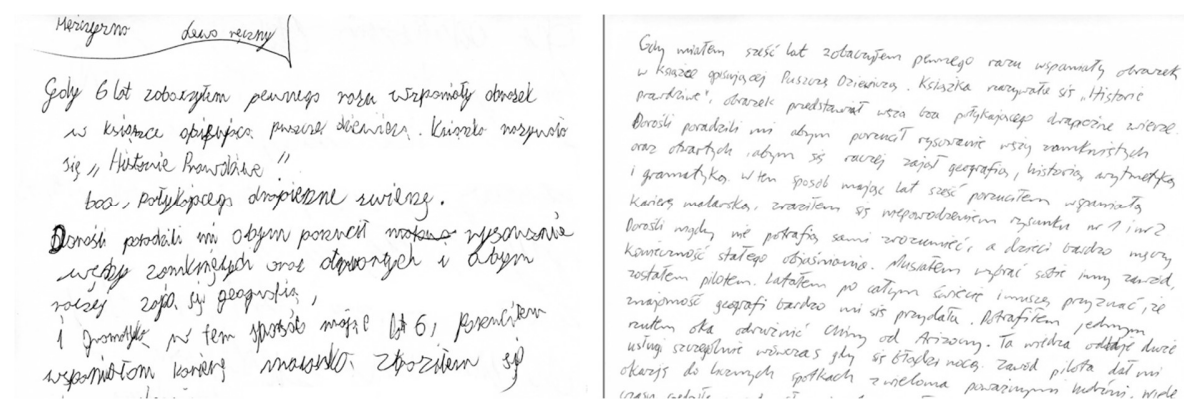 Mężczyzna lewo ręczny
Gdy 6 lat zobaczyłem pewnego razu wspaniały obrazek
w książce opisującą puszczę dziewiczą. Książka nazywała
się „Historie Prawdziwe”
boa, połykającego drapieżne zwierzę.
Dorośli poradzili mi abym porzucił rysowanie
węży zamkniętych oraz otwartych i abym
raczej zajął się geografią,
i gramatyką w ten sposób mając lat 6, porzuciłem
wspaniałą karierę malarską zraziłem się
Gdy miałem sześć lat zobaczyłem pewnego razu wspaniały obrazek
w książce opisującej Puszczę Dziewiczą. Książka nazywała się „Historie
prawdziwe”, obrazek przedstawiał węża boa połykającego drapieżne zwierzę.
Dorośli poradzili mi abym porzucił rysowanie węży zamkniętych
oraz otwartych, abym się raczej zajął geografią, historią arytmetyką
i gramatyką. W ten sposób mając lat sześć porzuciłem wspaniałą
karierę malarską, zraziłem się niepowodzeniem rysunku nr 1 i nr 2
Dorośli nigdy nie potrafią sami zrozumieć, a dzieci bardzo męczy
konieczność stałego objaśniania. Musiałem wybrać sobie inny zawód,
zostałem pilotem. Latałem po całym świecie i muszę przyznać, że
znajomość geografi bardzo mi się przydała. Potrafiłem jednym
rzutem oka odróżnić Chiny od Arizony. Ta wiedza oddaje duże
usługi szczególnie wówczas gdy się błądzi nocą. Zawód pilota dał mi
okazję do licznych spotkach z wieloma poważnymi ludźmi, wiele